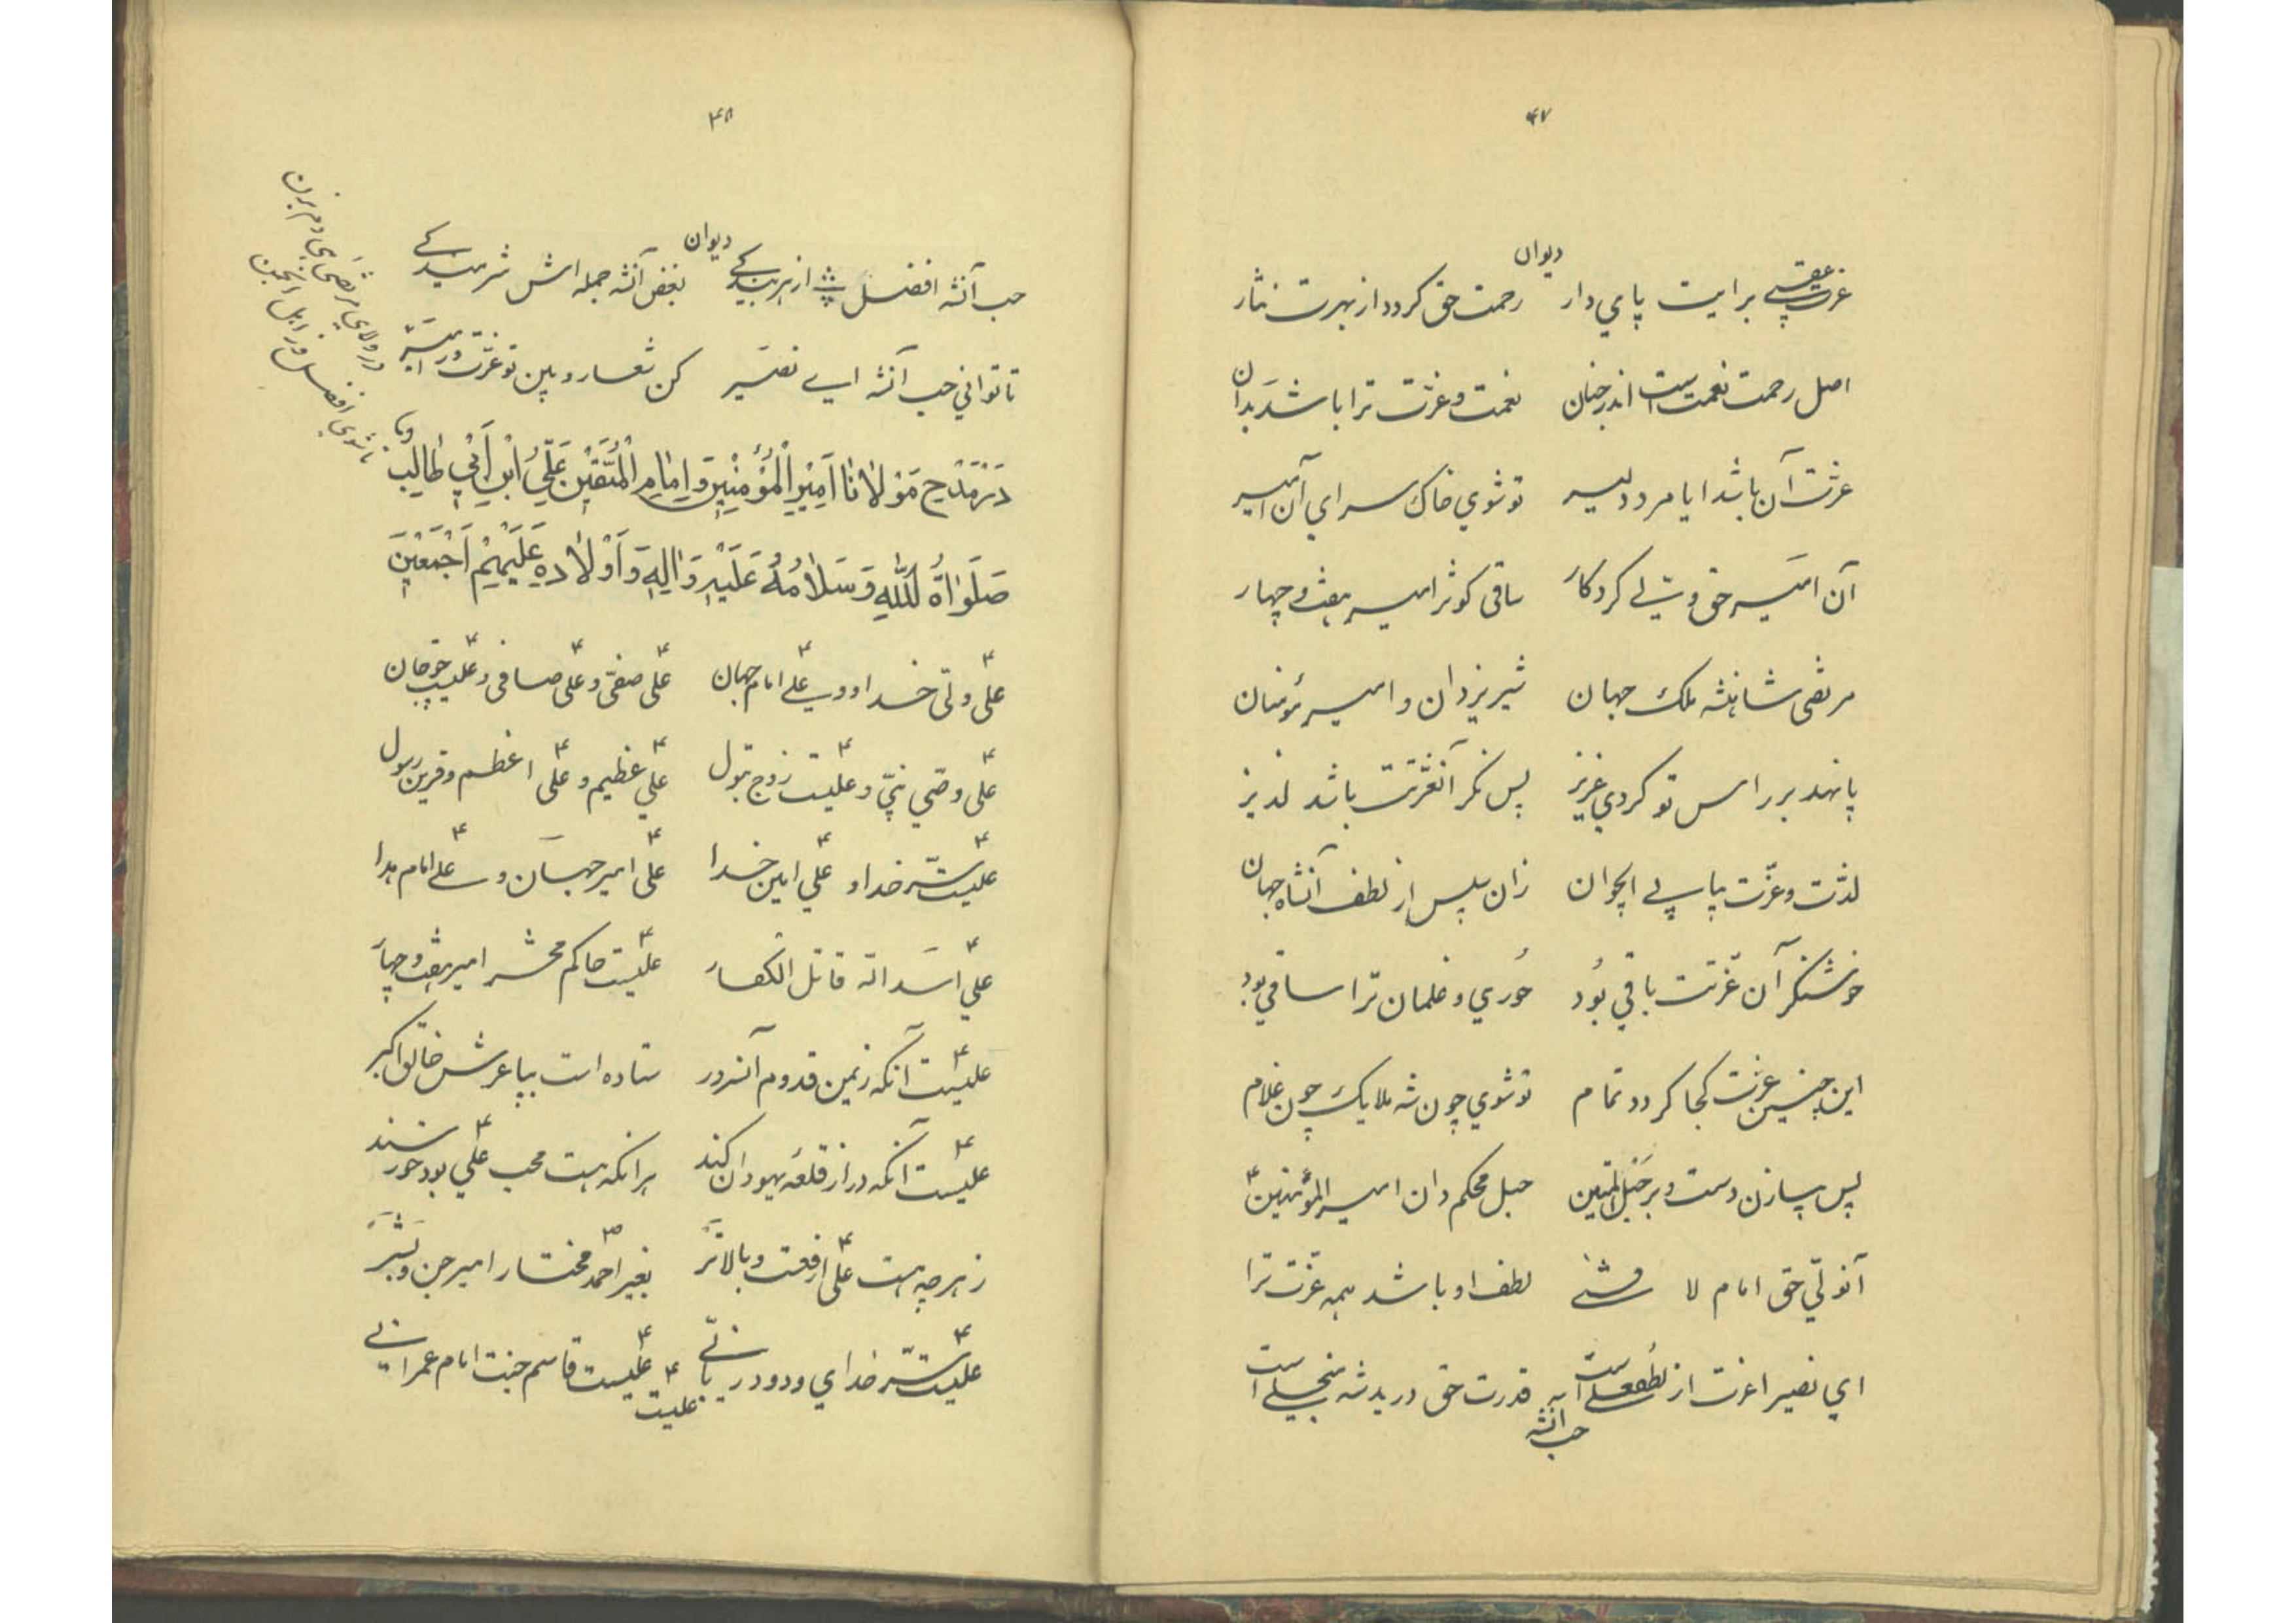 ۴۷
دیوان
عزت عقبی برایت پای دار رحمت حق گردد از بهرت نثار
اصل رحمت نعمت است اندر جنان نعمت و عزت ترا باشد بدان
عزت آن باشد ایا مرد دلیر تو شوی خاک سرای آن امیر
آن امیر حق ولی کردکار ساقی کوثر امیر هشت و چهار
مرتضی شاهنشه ملک جهان شیر یزدان و امیر مؤمنان
پا نهد بر راس تو کردی عزیز پس نگر آنعزتت باشد لذیز
لذت و عزت پیاپی ایجوان زان سپس از لطف آنشاه جهان
خوشنگر آن عزتت باقی بود حوری و غلمان ترا ساقی بود
این چنین عزت کجا کردد تمام تو شوی چون شه ملایک چون غلام
پس بیازن دست و بر حبل المتین حبل محکم دان امیر المؤمنین ع
آنولی حق امام لا فتی لطف او باشد همه عزت ترا
ای نصیرا عزت از لطف علی است قدرت حق در ید شه منجلی است
حب آنشه
۴۸
دیوان
حب آنشه افضل از هر بندکی بغض آنشه جمله اش شرمندکی
تا توانی حب آنشه ای نصیر کن شعار و بین تو عزت در
در ولای مرتضی دم بزن
تا شوی افضل ز اهل انجمن
در مدح مولانا امیر المؤمنین و امام المتقین علی ابن ابی طالب
صلواة الله و سلامه علیه و اله و اولاده علیهم اجمعین
علی ولی خدا و وی علی امام جهان علی صفی و علی صافی و علیست جان
علی وصی نبی و علیست زوج بتول علی عظیم و علی اعظم و قرین رسول
علیست سر خدا و علی امین خدا علی امیر جهان و علی امام هدا
علی اسد اله قاتل الکفار علیست حاکم محشر امیر هشت و چهار
علیست آنکه زیمن قدوم آنسرور ستاده است بپا عرش خالق اکبر
علیست آنکه در از قلعه یهودان کند هرانکه هست محب علی بود خورسند
ز هر چه هست علی ارفعست و بالاتر بغیر احمد مختار امیر جن و بشر
علیست سر خدای ودود ربانی علیست قاسم جنت امام عمرانی
علیست